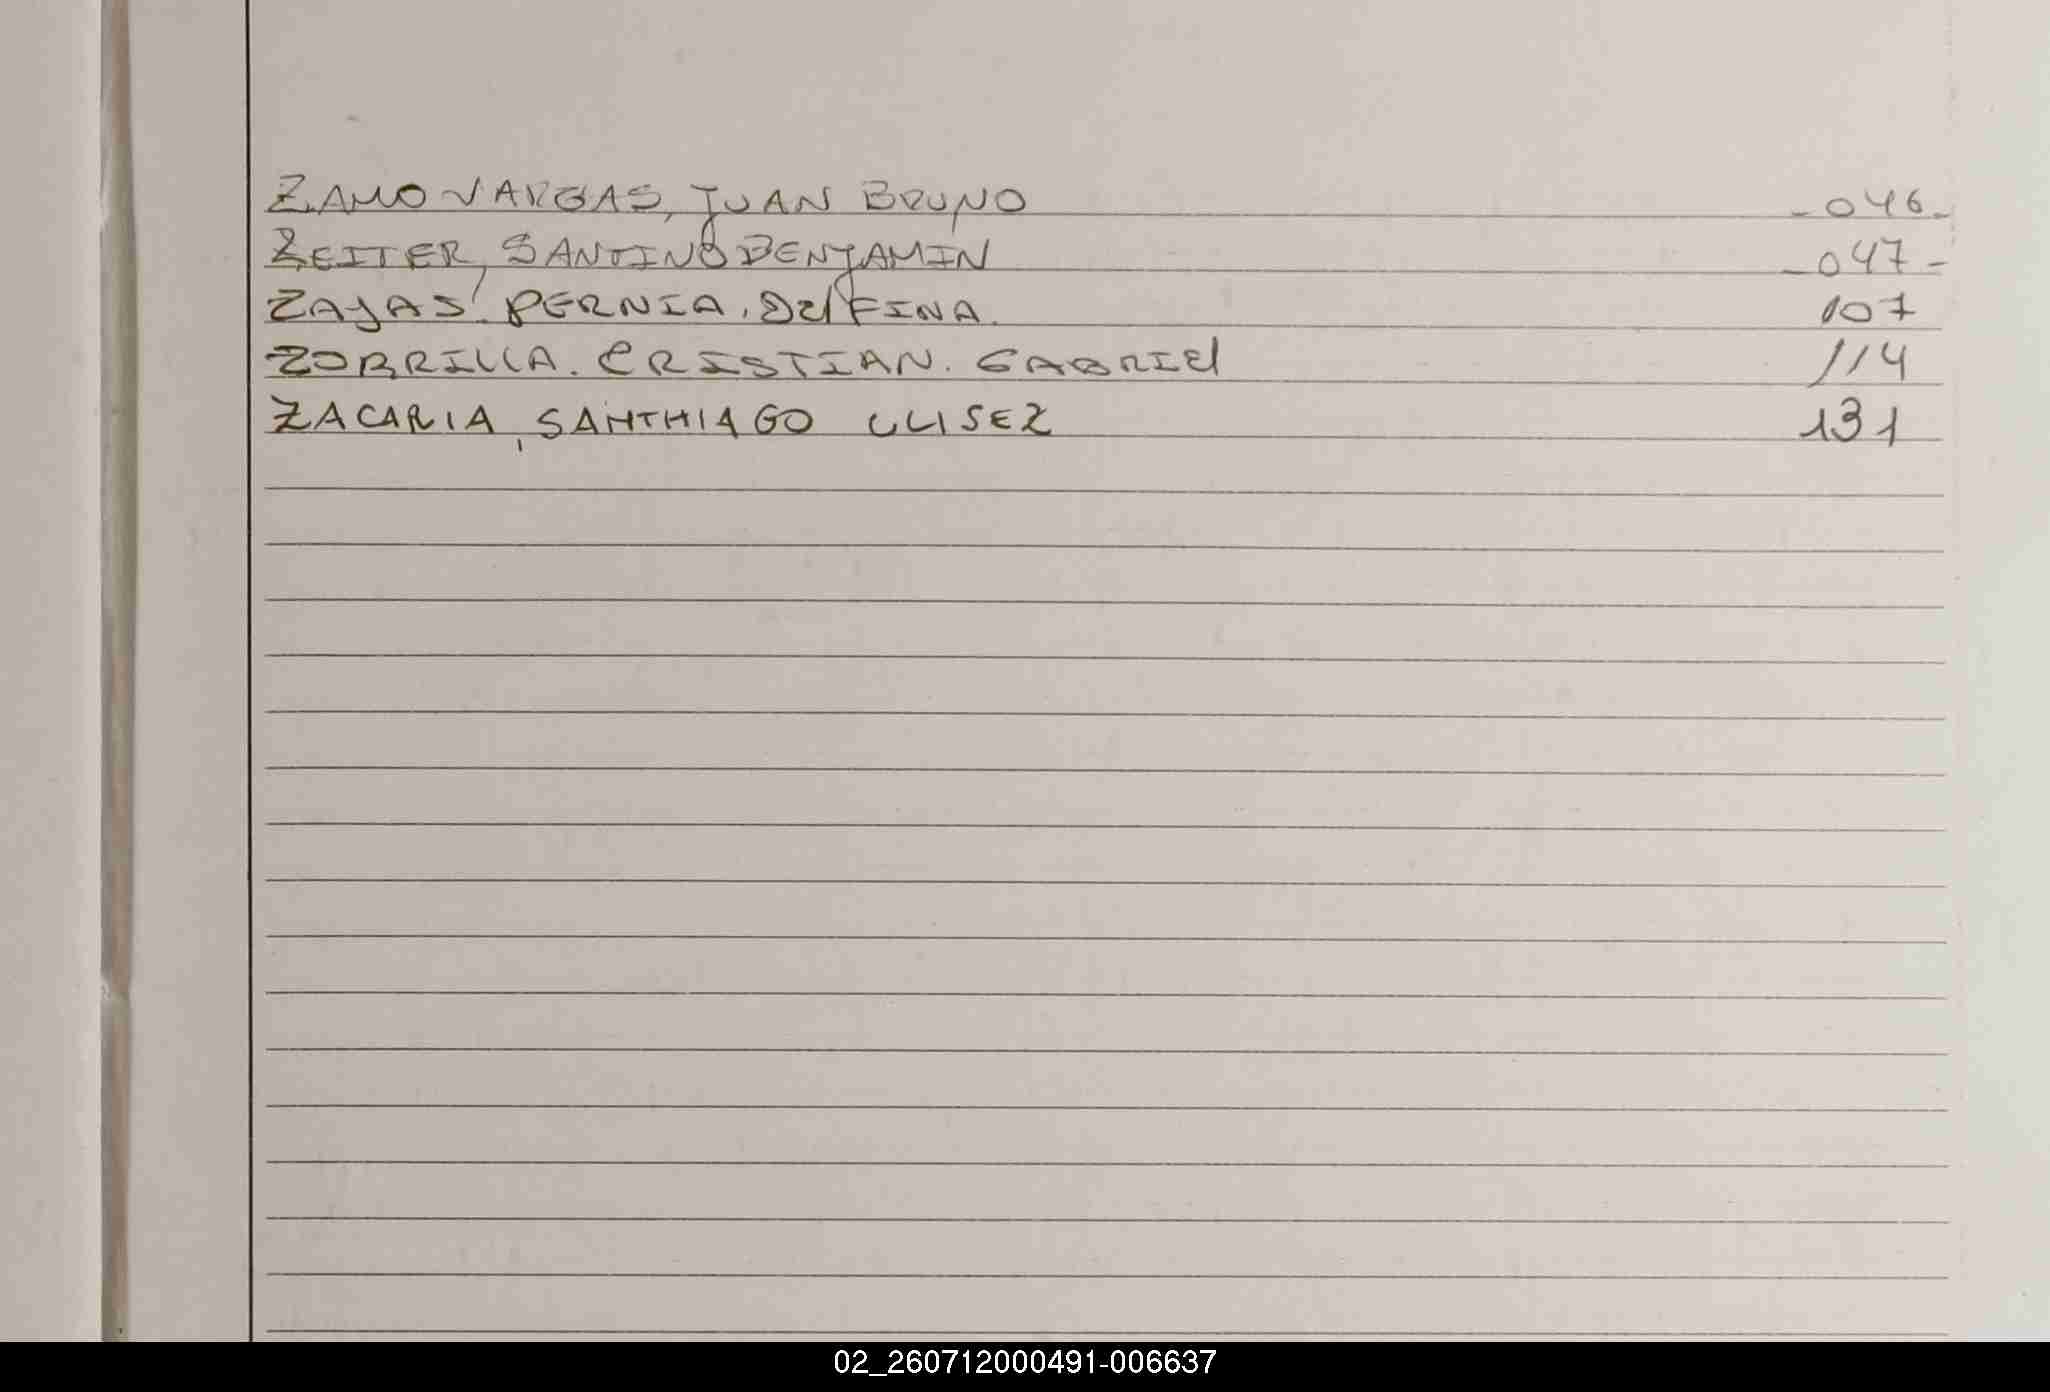 ZAMO VARGAS, JUAN BRUNO -046-
ZEITER, SANTINO BENJAMIN -047-
ZAJAS PERNIA. DElFINA. 107
ZORRILLA. CRISTIAN. GABRIEl 114
ZACARIA, SANTHIAGO ULISEZ 131
02_260712000491-006637